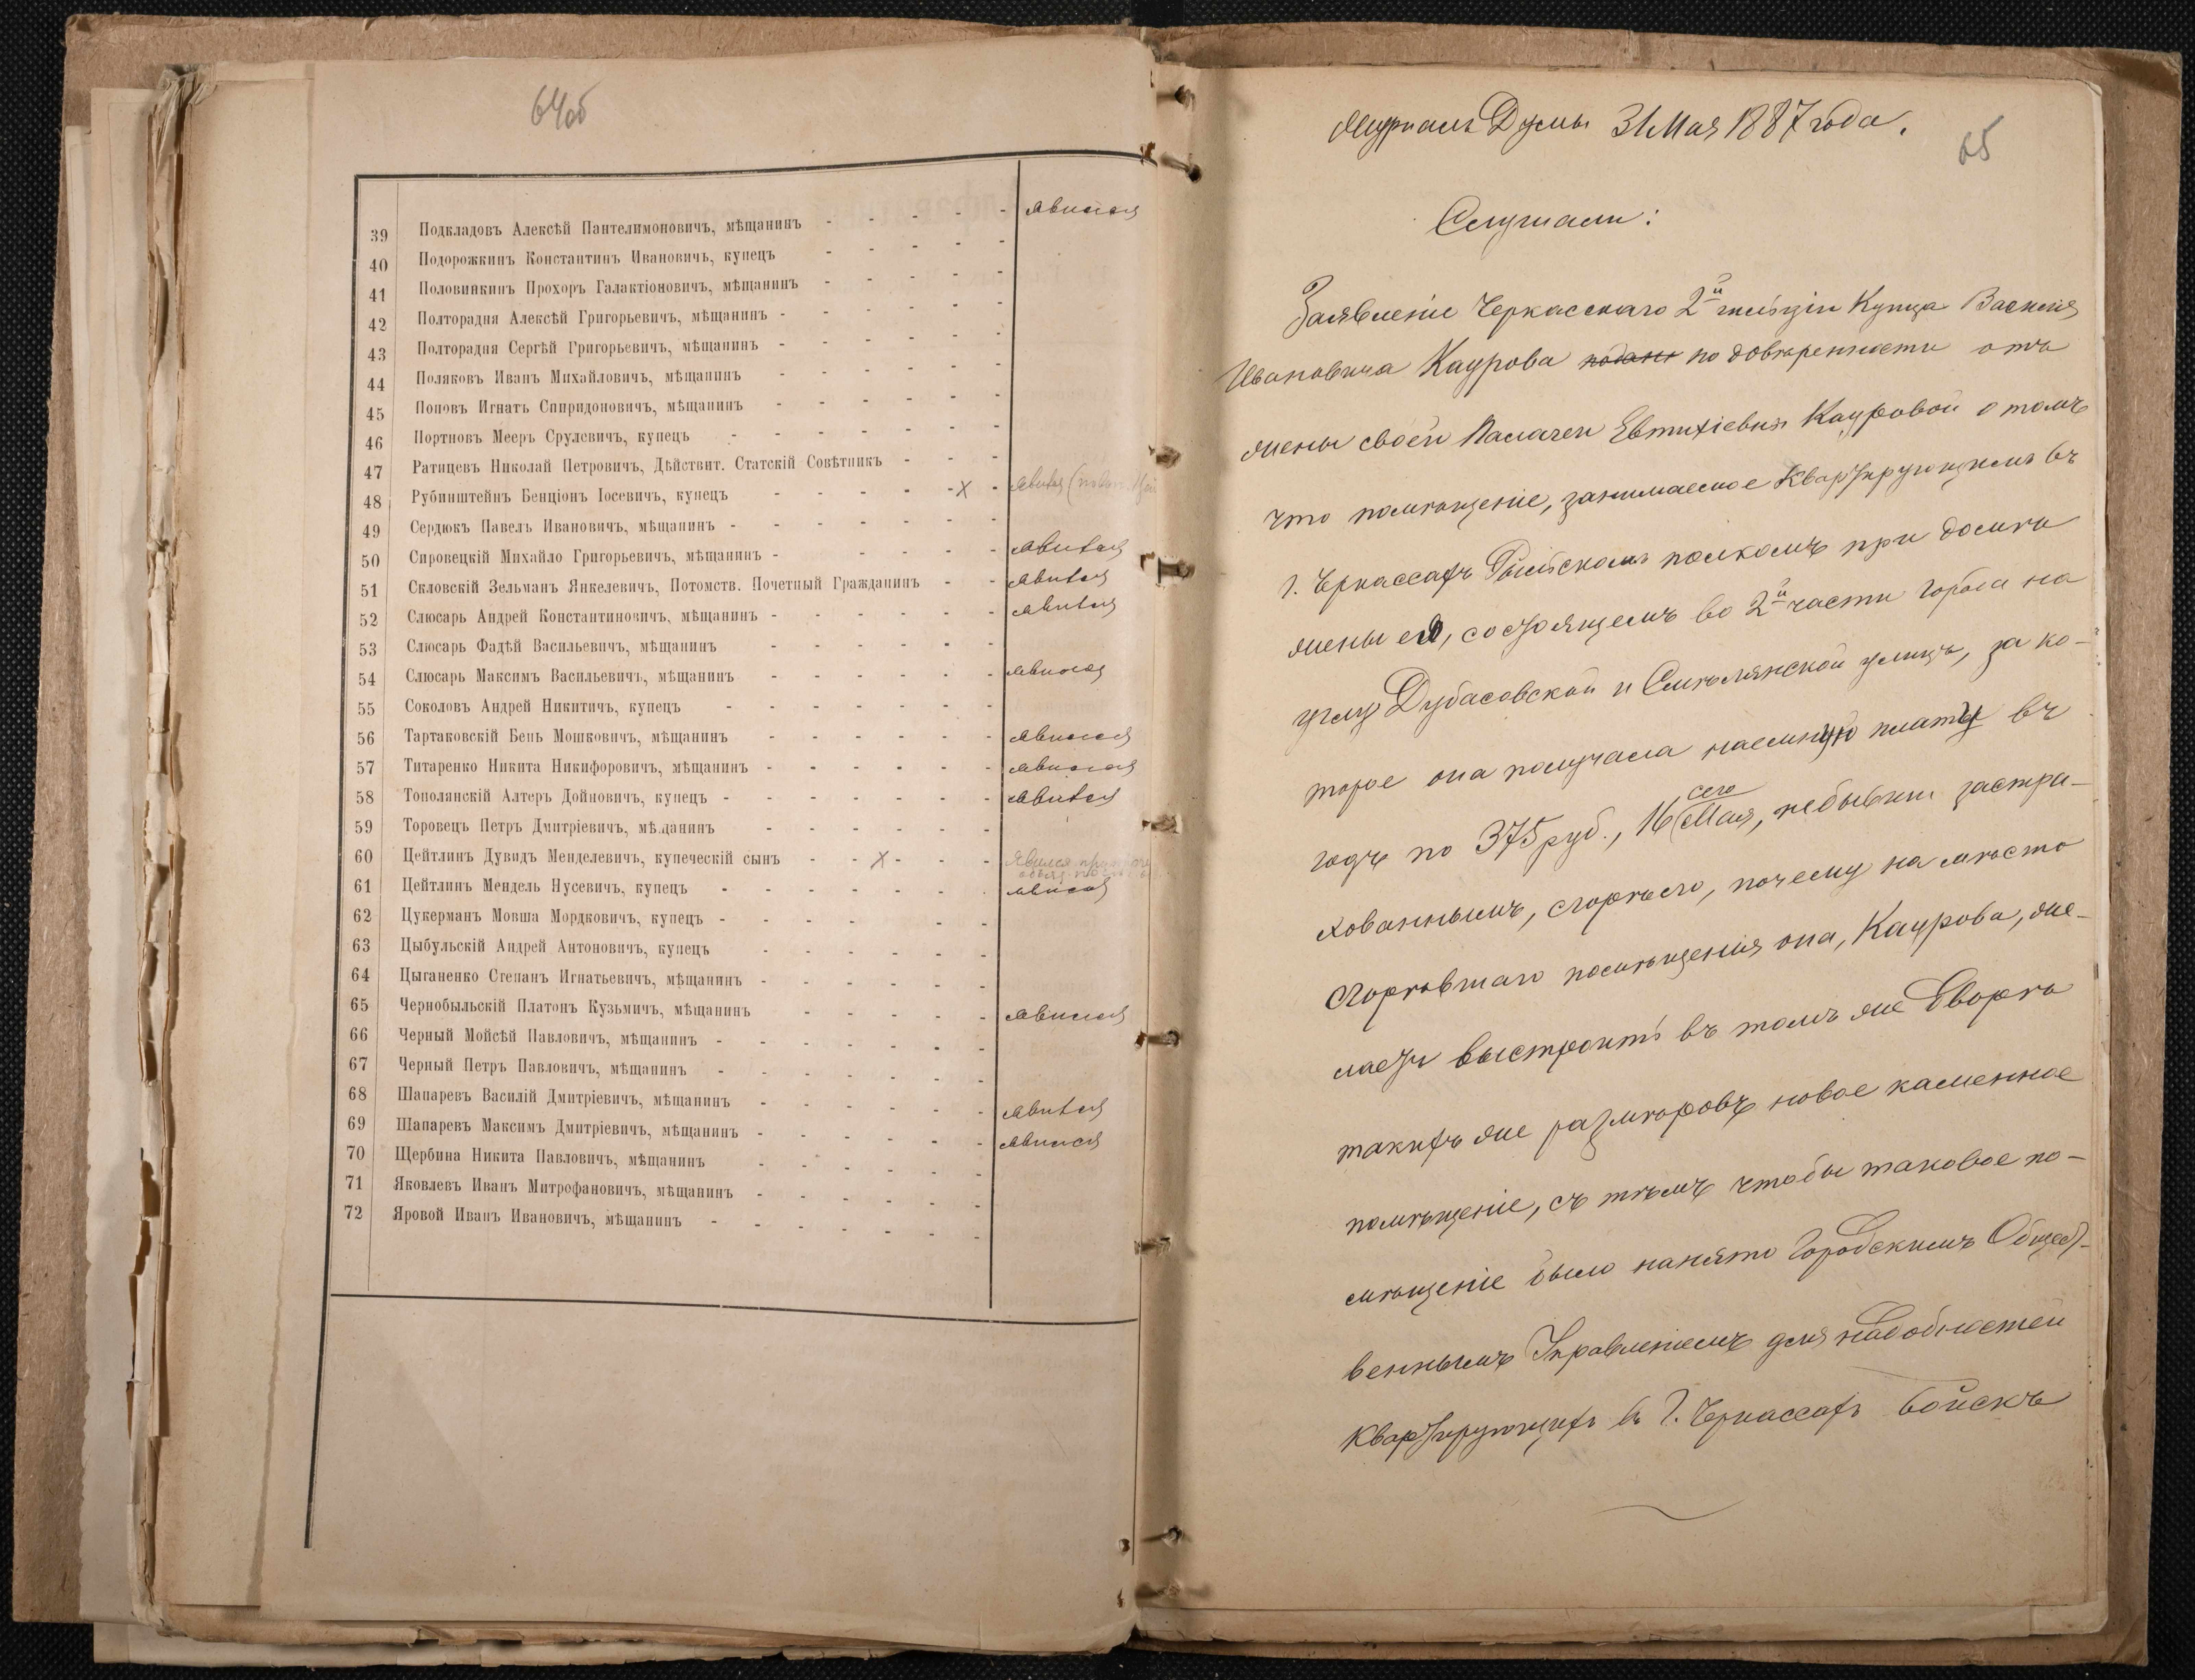 64об
39 Подкладовъ Алексѣй Пантелимоновичъ, мѣщанинъ - - - - - явился
40 Подорожкинъ Константинъ Ивановичъ, купецъ - - - - -
41 Половинкинъ Прохоръ Галактіоновичъ, мѣщанинъ - - - - -
42 Полторадня Алексѣй Григорьевичъ, мѣщанинъ - - - - - -
43 Полторадня Сергѣй Григорьевичъ, мѣщанинъ - - - - - -
44 Поляковъ Иванъ Михайловичъ, мѣщанинъ - - - - - -
45 Поповъ Игнатъ Спиридоновичъ, мѣщанинъ - - - - - -
46 Портновъ Мееръ Срулевичъ, купецъ - - - - - - -
47 Ратицевъ Николай Петровичъ, Дѣйствит. Статскій Совѣтникъ - - -
48 Рубинштейнъ Бенціонъ Іосевичъ, купецъ - - - - - х - явился
49 Сердюкъ Павелъ Ивановичъ, мѣщанинъ - - - - - - -
50 Сировецкій Михайло Григорьевичъ, мѣщанинъ - - - - - явился
51 Скловскій Зельманъ Янкелевичъ, Потомств. Почетный Гражданинъ - - явился
52 Слюсарь Андрей Константиновичъ, мѣщанинъ - - - - - - явился
53 Слюсарь Фадѣй Васильевичъ, мѣщанинъ - - - - - -
54 Слюсарь Максимъ Васильевичъ, мѣщанинъ - - - - - - явился
55 Соколовъ Андрей Никитичъ, купецъ - - - - - - -
56 Тартаковскій Бень Мошковичъ, мѣщанинъ - - - - - - явился
57 Титаренко Никита Никифоровичъ, мѣщанинъ - - - - - - явился
58 Тополянскій Алтеръ Дойновичъ, купецъ - - - - - - - явился
59 Торовецъ Петръ Дмитріевичъ, мѣщанинъ - - - - - -
60 Цейтлинъ Дувидъ Менделевичъ, купеческій сынъ - - х - - - явился
61 Цейтлинъ Мендель Нусевичъ, купецъ - - - - - - - явился
62 Цукерманъ Мовша Мордковичъ, купецъ - - - - - - -
63 Цыбульскій Андрей Антоновичъ, купецъ - - - - - -
64 Цыганенко Степанъ Игнатьевичъ, мѣщанинъ - - - - - -
65 Чернобыльскій Платонъ Кузьмичъ, мѣщанинъ - - - - - явился
66 Черный Мойсѣй Павловичъ, мѣщанинъ - - - - - - -
67 Черный Петръ Павловичъ, мѣщанинъ - - - - - - -
68 Шапаревъ Василій Дмитріевичъ, мѣщанинъ - - - - - - явился
69 Шапаревъ Максимъ Дмитріевичъ, мѣщанинъ - - - - - - явился
70 Щербина Никита Павловичъ, мѣщанинъ - - - - - -
71 Яковлевъ Иванъ Митрофановичъ, мѣщанинъ - - - - - -
72 Яровой Иванъ Ивановичъ, мѣщанинъ - - - - - - -
Журналъ Думы 31 Мая 1887 года.
65
Слушали:
Заявленіе Черкасскаго 2й гильдіи Купца Василія
Ивановича Каурова подан по довѣренности отъ
жены своей Пелагеи Евтихіевны Кауровой о томъ
что помѣщеніе, занимаемое Квартирующимъ въ
г. Черкассахъ полкомъ при домѣ
жены ея, состоящемъ во 2й части города на
углу Дубасовской и Смѣлянской улицъ, за ко-
торое она получала наемную плату въ
годъ по 375 руб., 16 сего Мая, небывши застра-
хованнымъ, сгорѣло, почему на мѣсто
сгорѣвшаго помѣщенія она, Каурова, же-
лаетъ выстроить въ томъ же дворѣ
такихъ же размѣровъ новое каменное
помѣщеніе, съ тѣмъ чтобы таковое по-
мѣщеніе было нанято Городскимъ Общест-
веннымъ Управленіемъ для надобностей
Квартирующихъ въ г. Черкассахъ войскъ